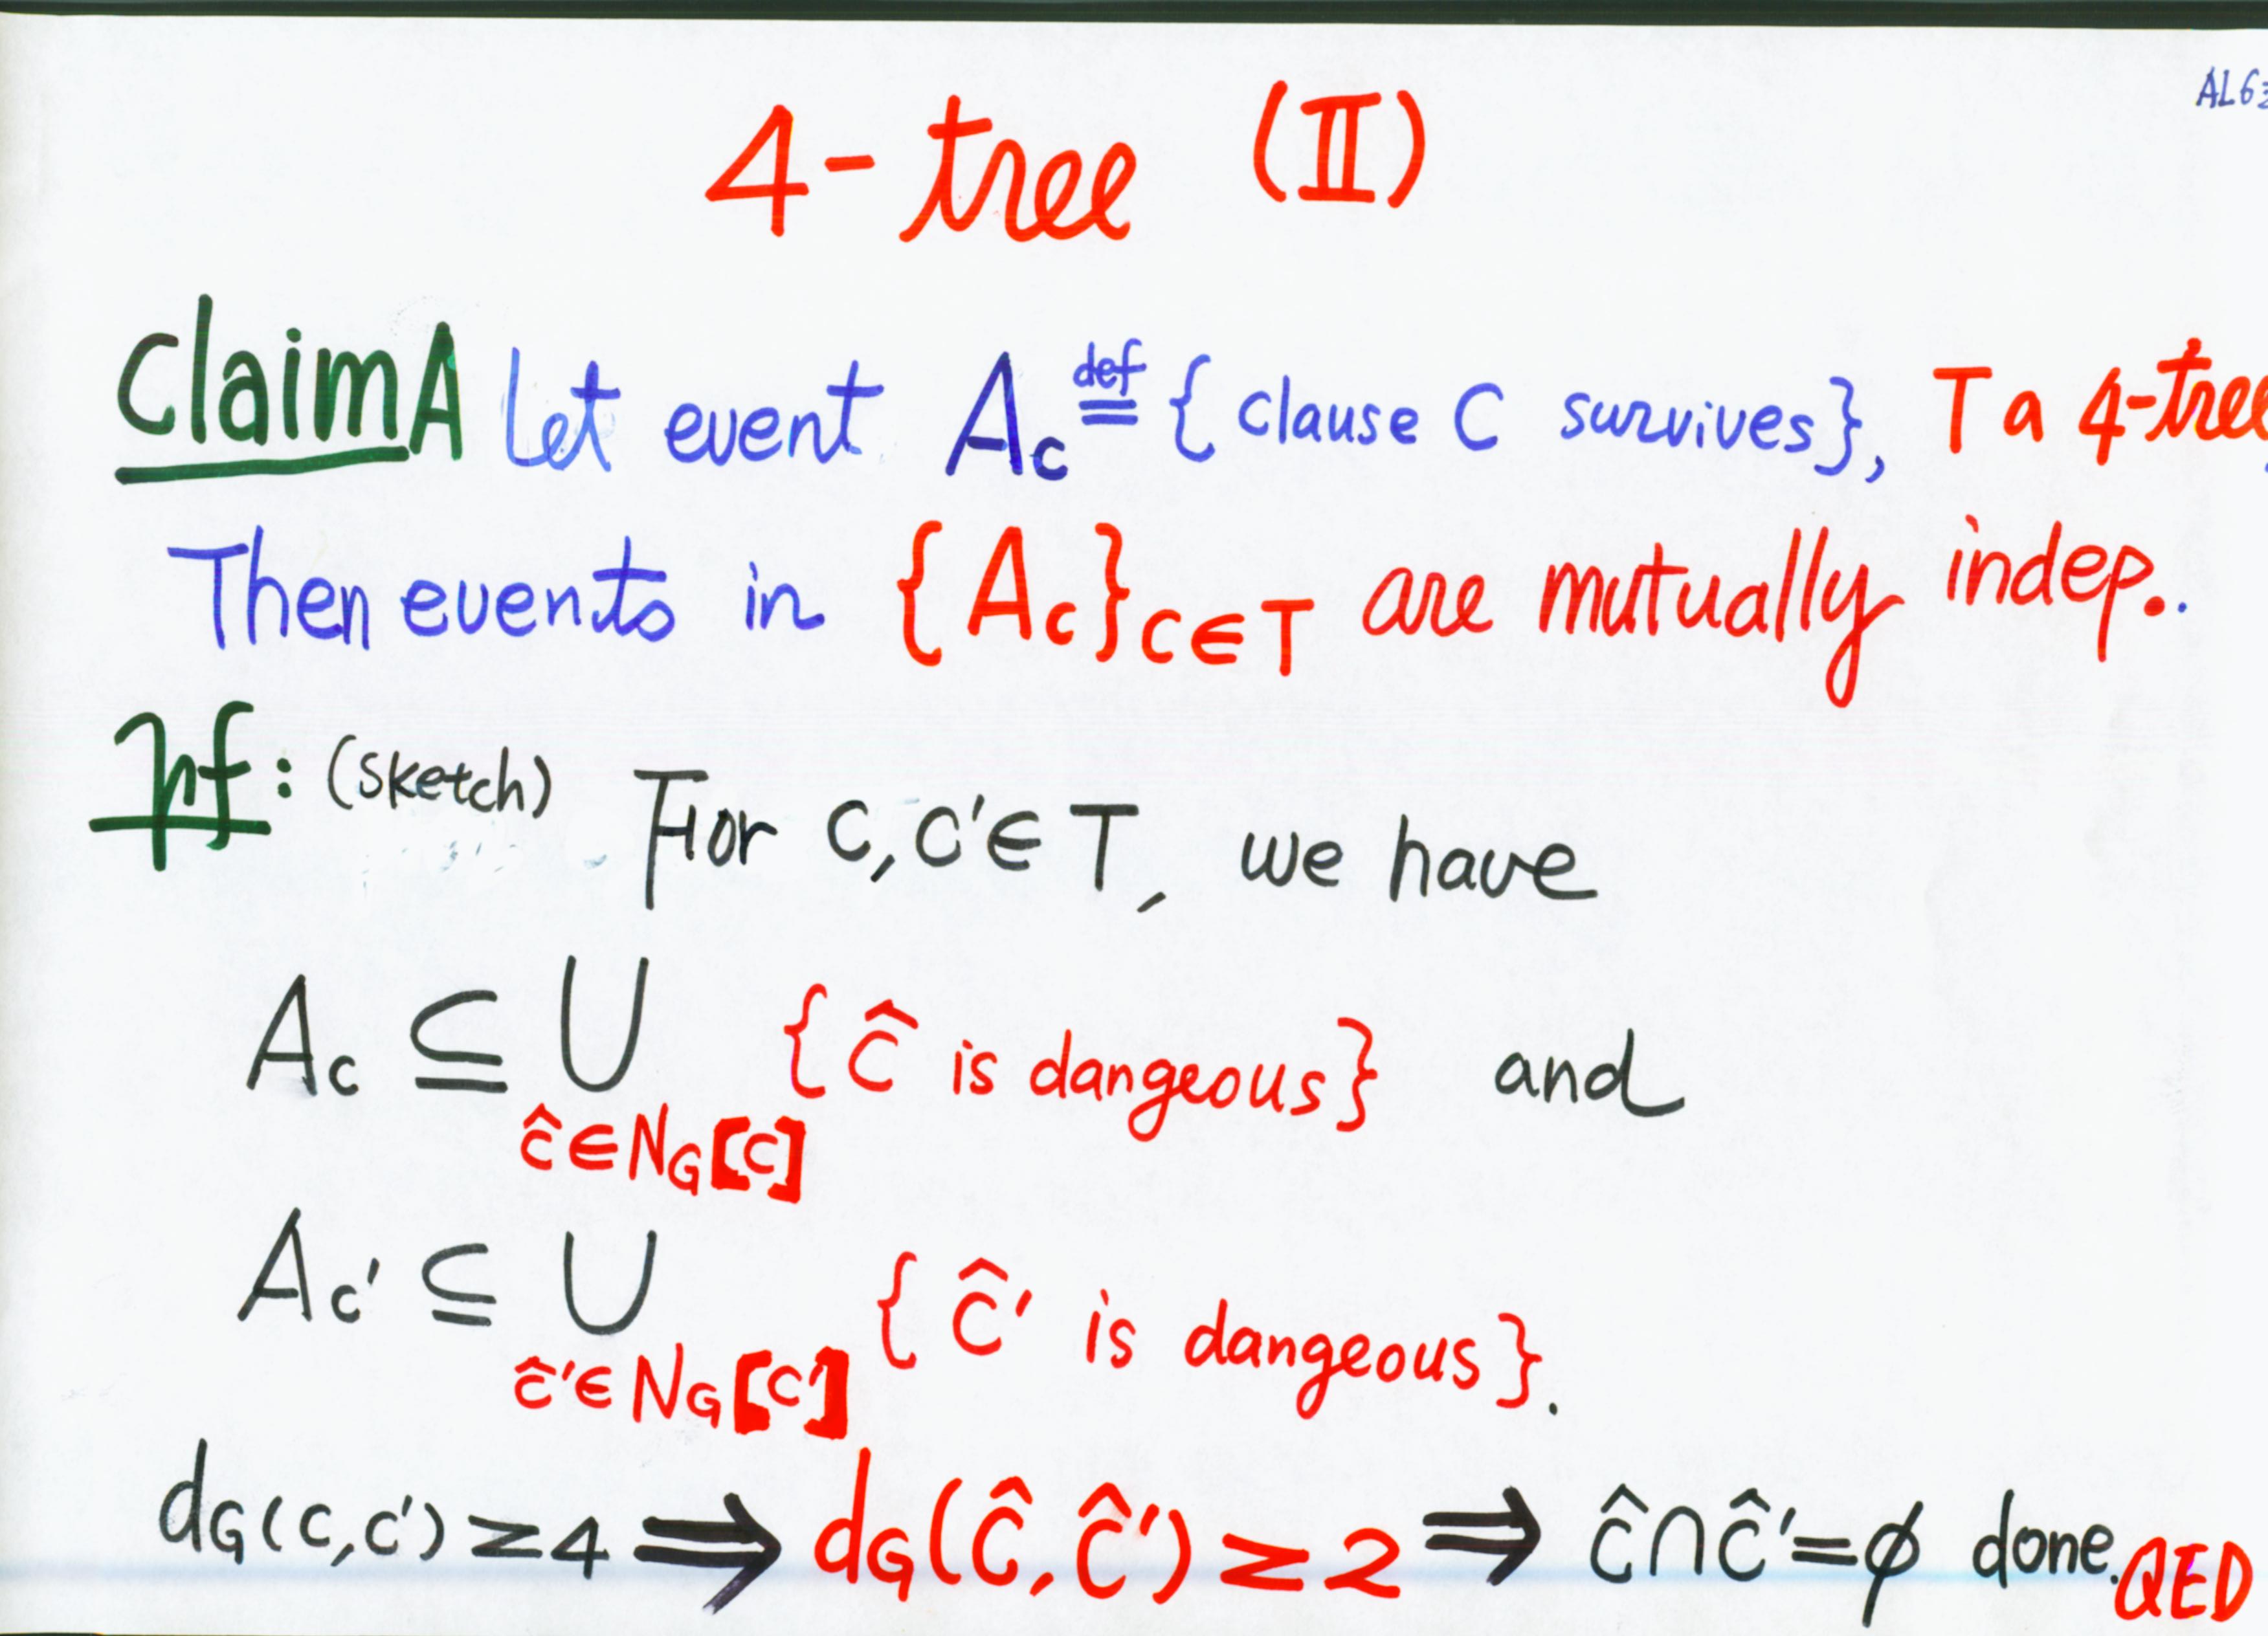 AL63
4-tree (II)
Claim A Let event A_c ≝ { clause C survives}, T a 4-tree,
Then events in {A_c}_{C∈T} are mutually indep..
pf: (sketch) For C, C'∈ T, we have
A_c ⊆ ∪_{ĉ∈N_G[C]} {Ĉ is dangeous} and
A_{c'} ⊆ ∪_{ĉ'∈N_G[C']} {Ĉ' is dangeous}.
d_G(C,C') ≥ 4 ⟹ d_G(Ĉ,Ĉ') ≥ 2 ⟹ Ĉ∩Ĉ'=ϕ done. QED